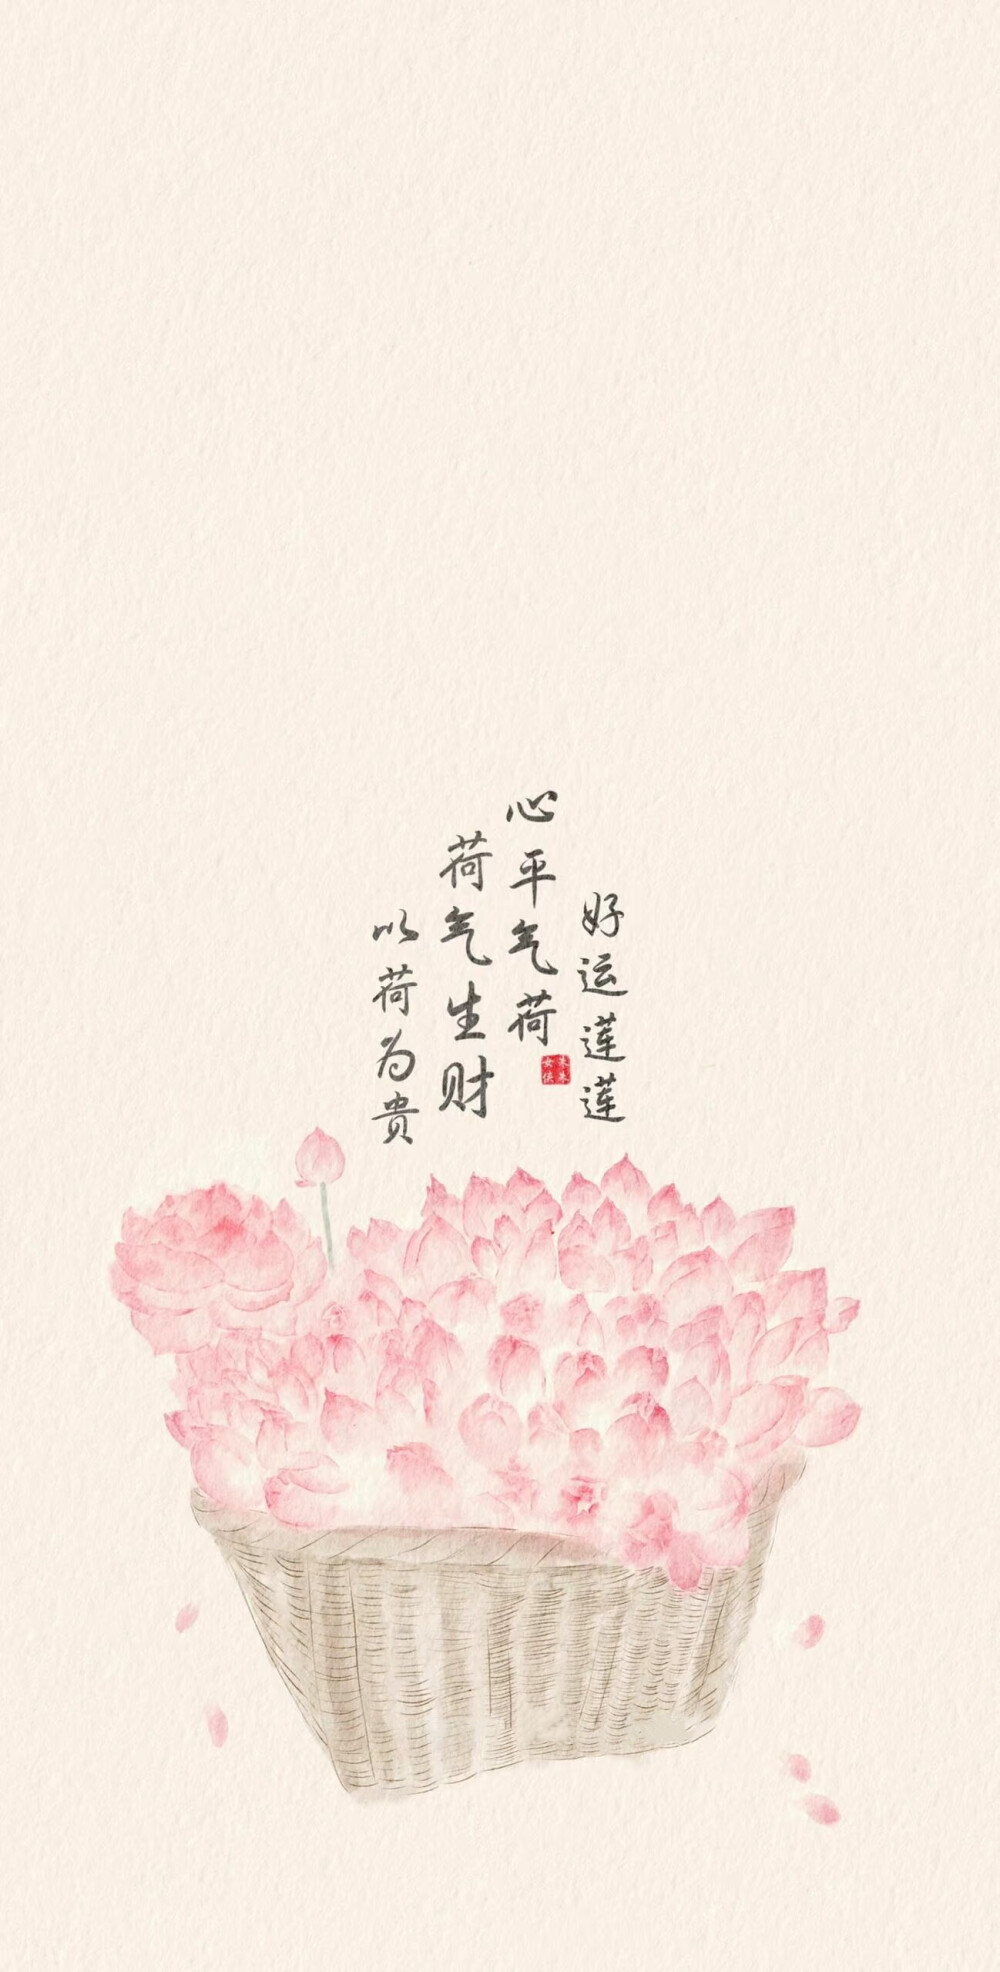 好运莲莲
心平气荷
荷气生财
以荷为贵